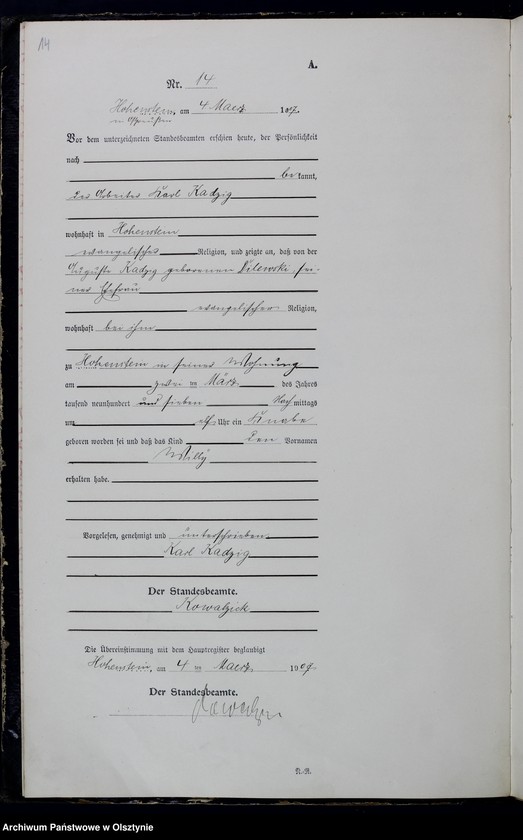 14
A.
Nr. 14
Hohenstein, am 4 Maerz 1907
in Ostpreußen
Vor dem unterzeichneten Standesbeamten erschien heute, der Persönlichkeit
nach
be kannt,
der Arbeiter Karl Kadzig
wohnhaft in Hohenstein
evangelischer Religion, und zeigte an, daß von der
Auguste Kadzig geborenen Vilewski sei-
ner Ehefrau
evangelischer Religion,
wohnhaft bei ihm
zu Hohenstein in seiner Wohnung
am zwei ten März des Jahres
tausend neunhundert und sieben Nach mittags
um elf Uhr ein Knabe
geboren worden sei und daß das Kind den Vornamen
Willy
erhalten habe.
Vorgelesen, genehmigt und unterschrieben
Karl Kadzig
Der Standesbeamte.
Kowalzick
Die Übereinstimmung mit dem Hauptregister beglaubigt
Hohenstein, am 4 ten Maerz 1907
Der Standesbeamte.
N.-R.
Archiwum Państwowe w Olsztynie